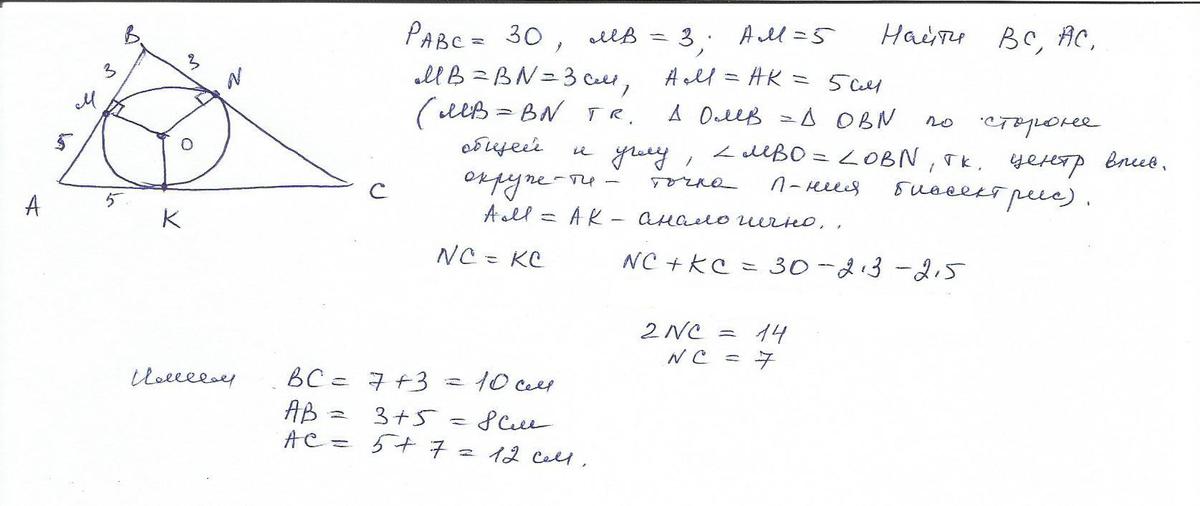 B
3
3
N
M
5
O
A
5
K
C
P ABC = 30, MB = 3; AM = 5 Найти BC, AC.
MB = BN = 3 см, AM = AK = 5 см
(MB = BN т к. Δ OMB = Δ OBN по стороне
общей и углу, ∠MBO = ∠OBN, т к. центр впис.
окруж-ти – точка п-ния биссектрис).
AM = AK – аналогично..
NC = KC NC + KC = 30 – 2·3 – 2·5
2NC = 14
NC = 7
Имеем BC = 7 + 3 = 10 см
AB = 3 + 5 = 8 см
AC = 5 + 7 = 12 см.